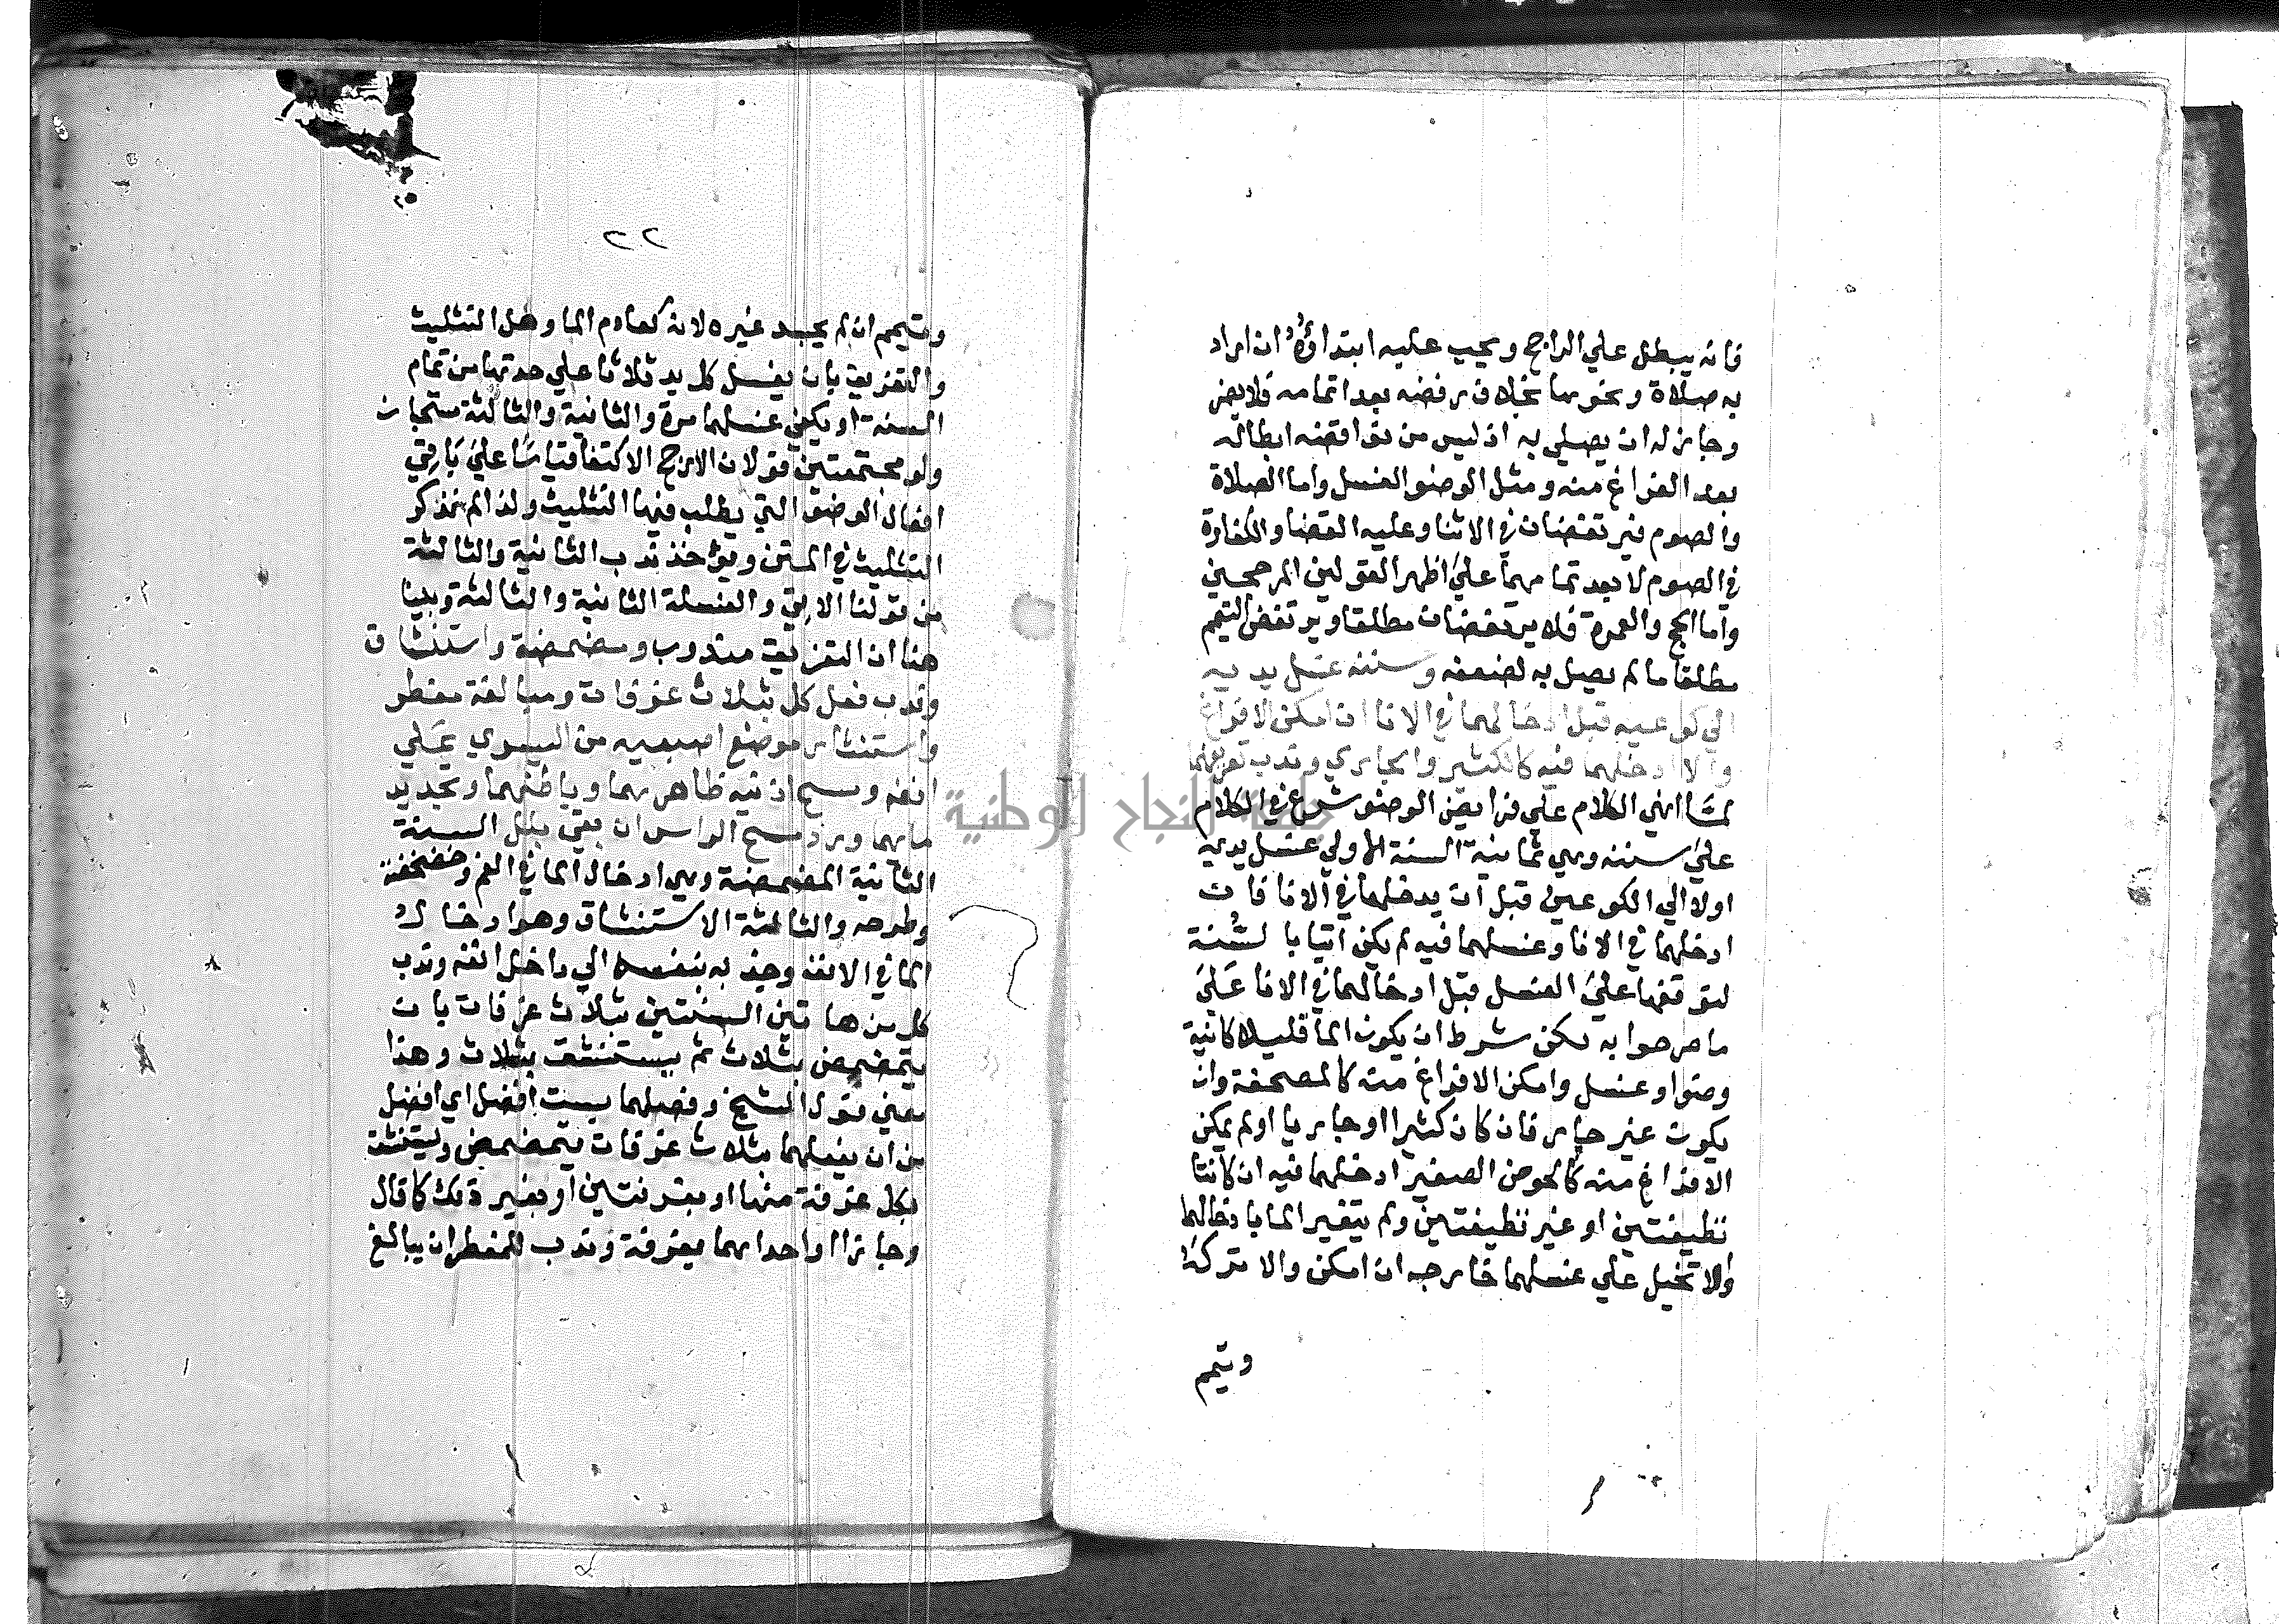 فانه يبطل علي الراجح ويجب عليه ابتداؤه ان اراد
به صلاة ونحوها بخلاف رفضه بعد اتمامه فلا يضر
وجاز له ان يصلي به اذ ليس من نواقضه ابطاله
بعد الفراغ منه ومثل الوضو الغسل واما الصلاة
والصوم فيرتفضان في الاثنا وعليه القضا والكفارة
في الصوم لا بعد تمامهما علي اظهر القولين المرجحين
واما الحج والعمرة فلا يرتفضان مطلقا ويرتفض التيمم
مطلقا ما لم يصل به لضعفه وسننه غسل يديه
الي كوعيه قبل ادخالهما في الانا ان امكن الافراغ
والا ادخلهما فيه كالكثير والجاري وندب تفريقهما
لمّا انهي الكلام علي فرايض الوضو شرع في الكلام
علي سننه وهي ثمانية السنة الاولي غسل يديه
اولا الي الكوعين قبل ان يدخلهما في الانا فان
ادخلهما في الانا وغسلهما فيه لم يكن اتيا بالسُّنة
لتوقفها علي الغسل قبل ادخالهما في الانا علي
ما صرحوا به لكن شرط ان يكون الما قليلا كانية
وضوا وغسل وامكن الافراغ منه كالصحفة وان
يكون غير جار فان كان كثيرا او جاريا او لم يمكن
الافراغ منه كالحوض الصغير ادخلهما فيه ان كانتا
نظيفتين او غير نظيفتين ولم يتغير الما بادخالهما
والا تحيل علي غسلهما خارجه ان امكن والا تركه
ويتيمم
٢٢
ويتيمم ان لم يجد غيره لانه كعادم الما وهل التثليث
والتفريق بان يغسل كل يد ثلاثا علي حدتها من تمام
السنة او يكفي غسلهما مرة والثانية والثالثة مستحبان
ولو مجتمعتين قولان الارجح الاكتفا قياسًا علي بَاقي
افعال الوضو التي يطلب فيها التثليث ولذا لم نذكر
التثليث في المتن ويؤخذ ندب الثانية والثالثة
من قولنا الاتي والغسلة الثانية والثالثة وبينا
هنا ان التفريق مندوب ومضمضة واستنشاق
وندب فعل كل بثلاث غرفات ومبالغة مفطر
واستنثار بوضع اصبعيه من اليسري علي
انفه ومسح اذنيه ظاهرهما وباطنهما وتجديد
مايهما ورد مسح الراس ان بقي بلل السنة
الثانية المضمضة وهي ادخال الما في الفم وخضخضته
وطرحه والثالثة الاستنشاق وهو ادخال
الما في الانف وجذبه بنفسه الي داخل انفه وندب
كل من هاتين السنتين بثلاث غرفات بان
يتمضمض بثلاث ثم يستنشق بثلاث وهذا
معني قول الشيخ وفعلهما بست افضل اي افضل
من ان يفعلهما بثلاث غرفات يتمضمض ويستنشق
بكل غرفة منها او بغرفتين او بغير ذلك كما قال
وجازا او احداهما بغرفة وندب للمفطر ان يبالغ
جامعة النجاح الوطنية